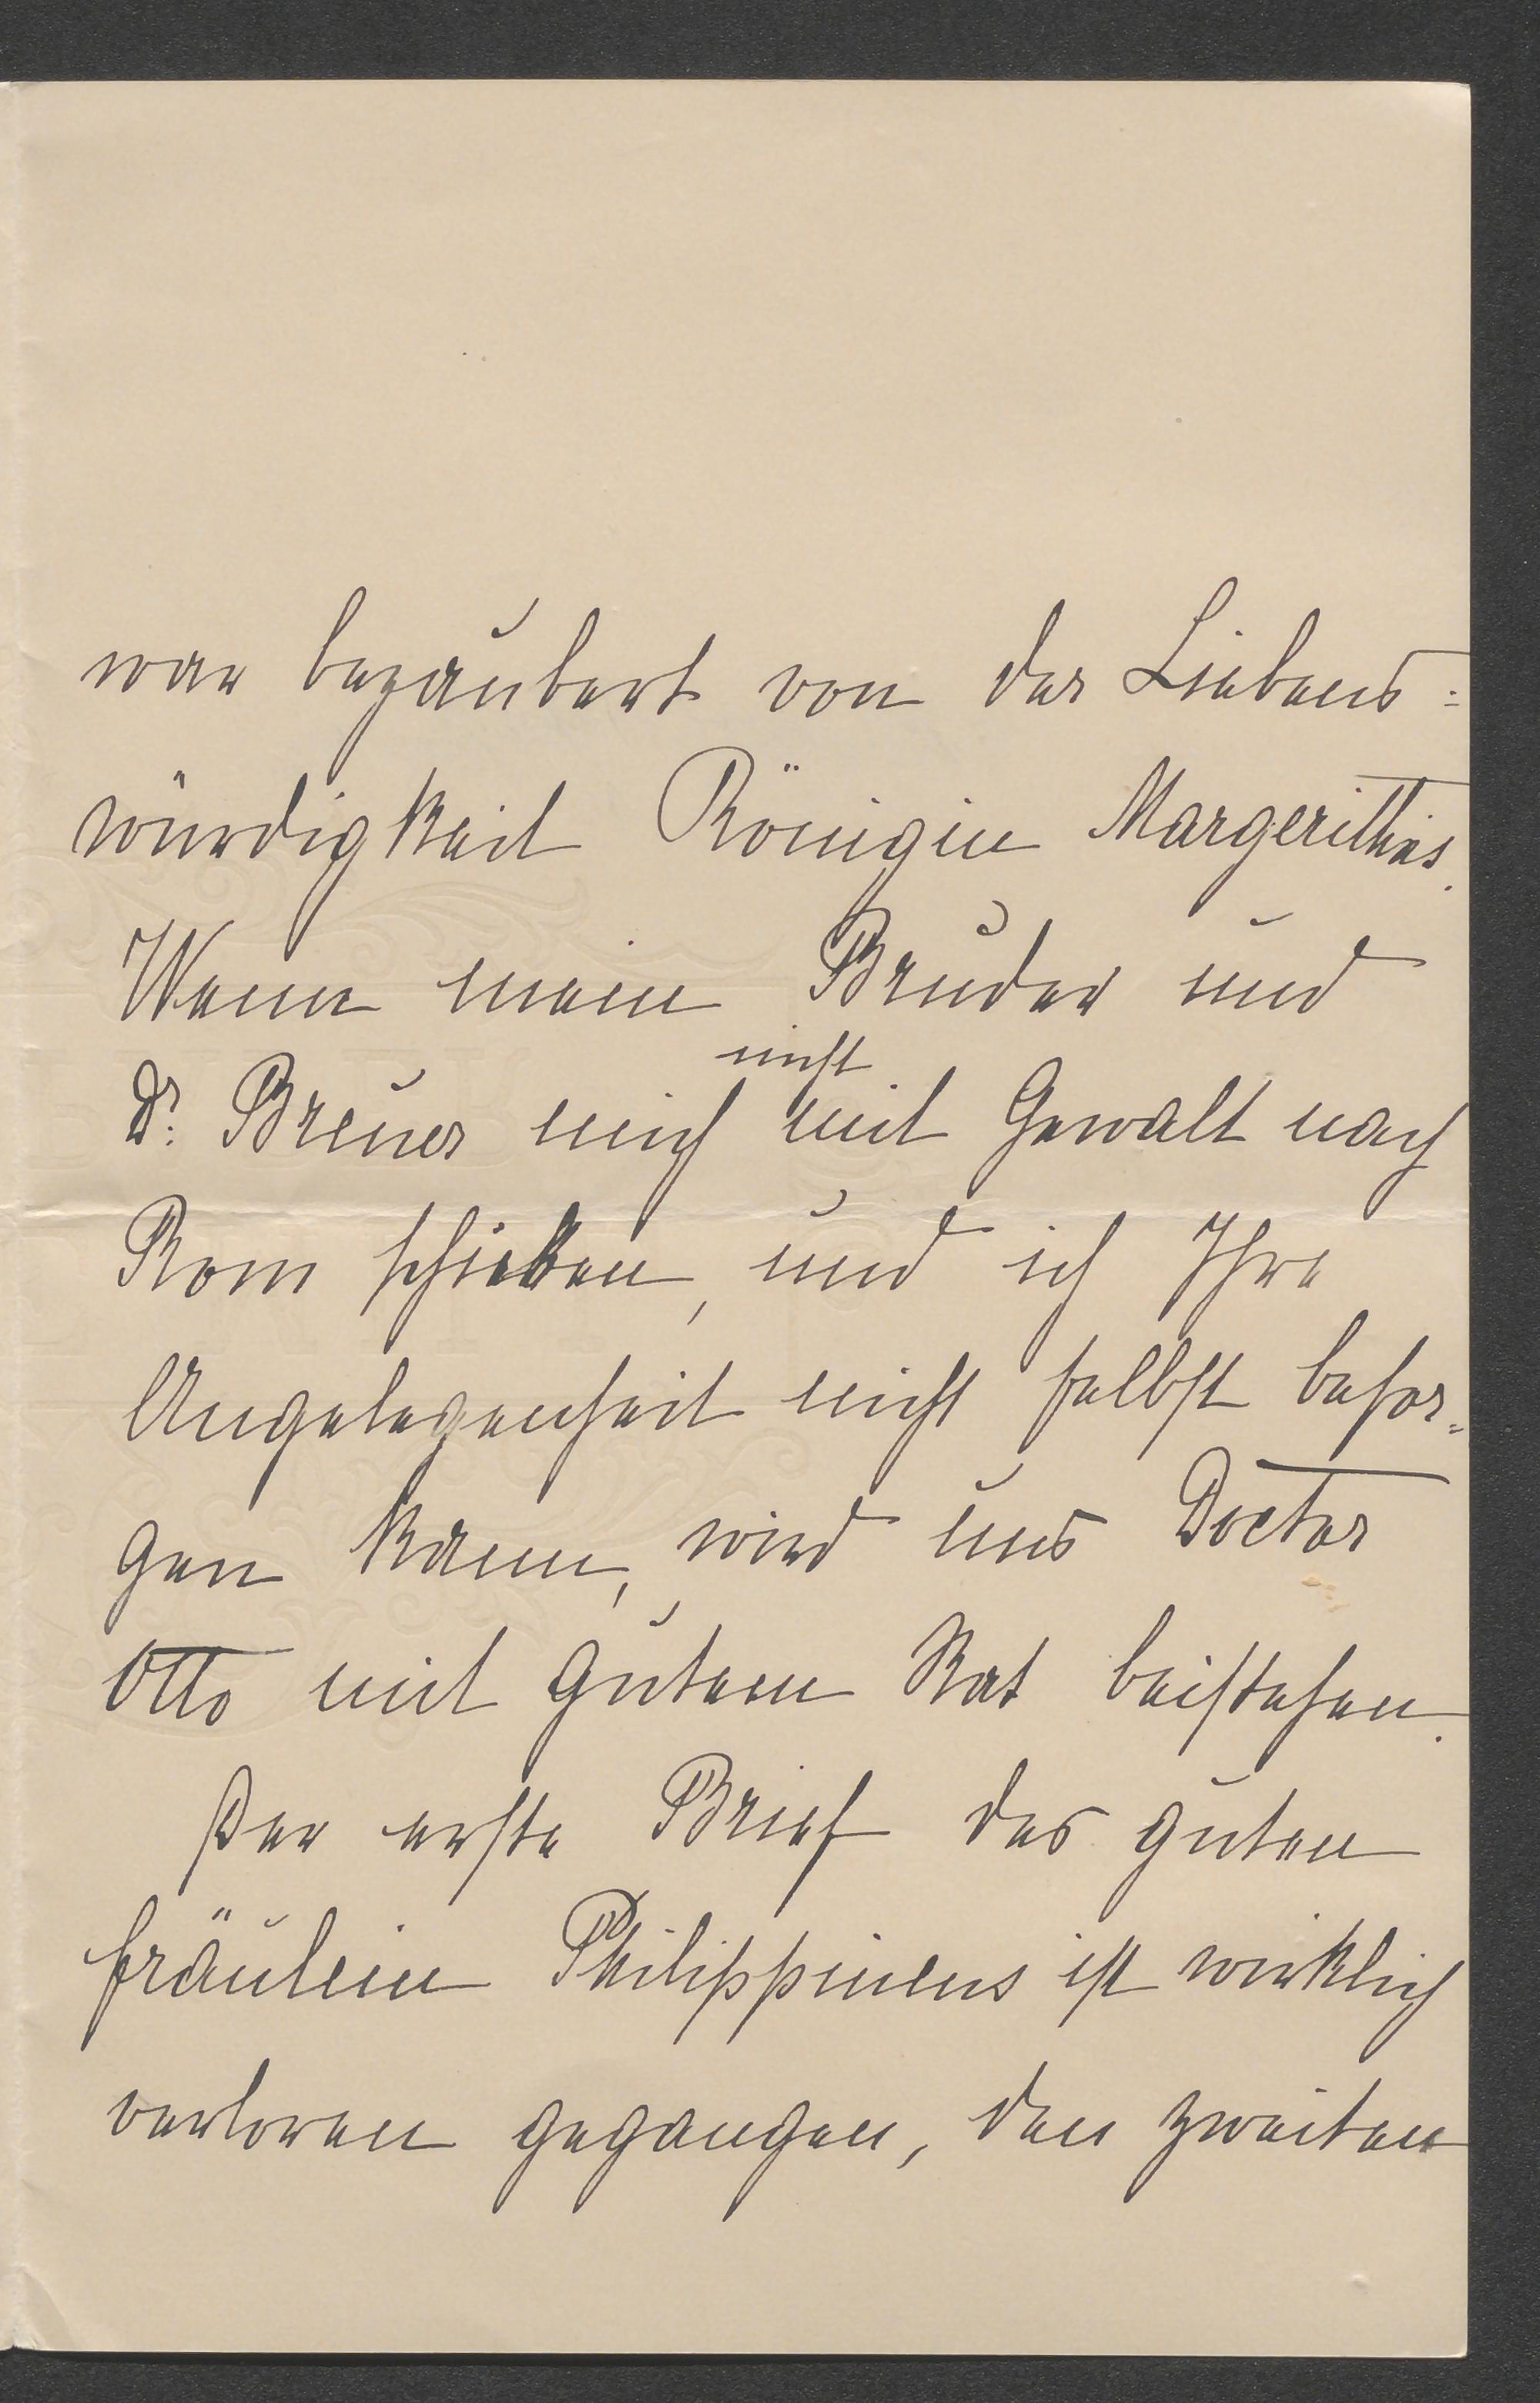 war bezaubert von der Liebens=
würdigkeit Königin Margerithas.
Wenn mein Bruder und
nicht
Dr. Breuer mich mit Gewalt nach
Rom schicken, und ich Ihre
Angelegenheit nicht selbst besor=
gen kann, wird uns Doctor
Otto mit gutem Rat beistehen.
Der erste Brief des guten
Fräulein Philippinens ist wirklich
verloren gegangen, den zweiten